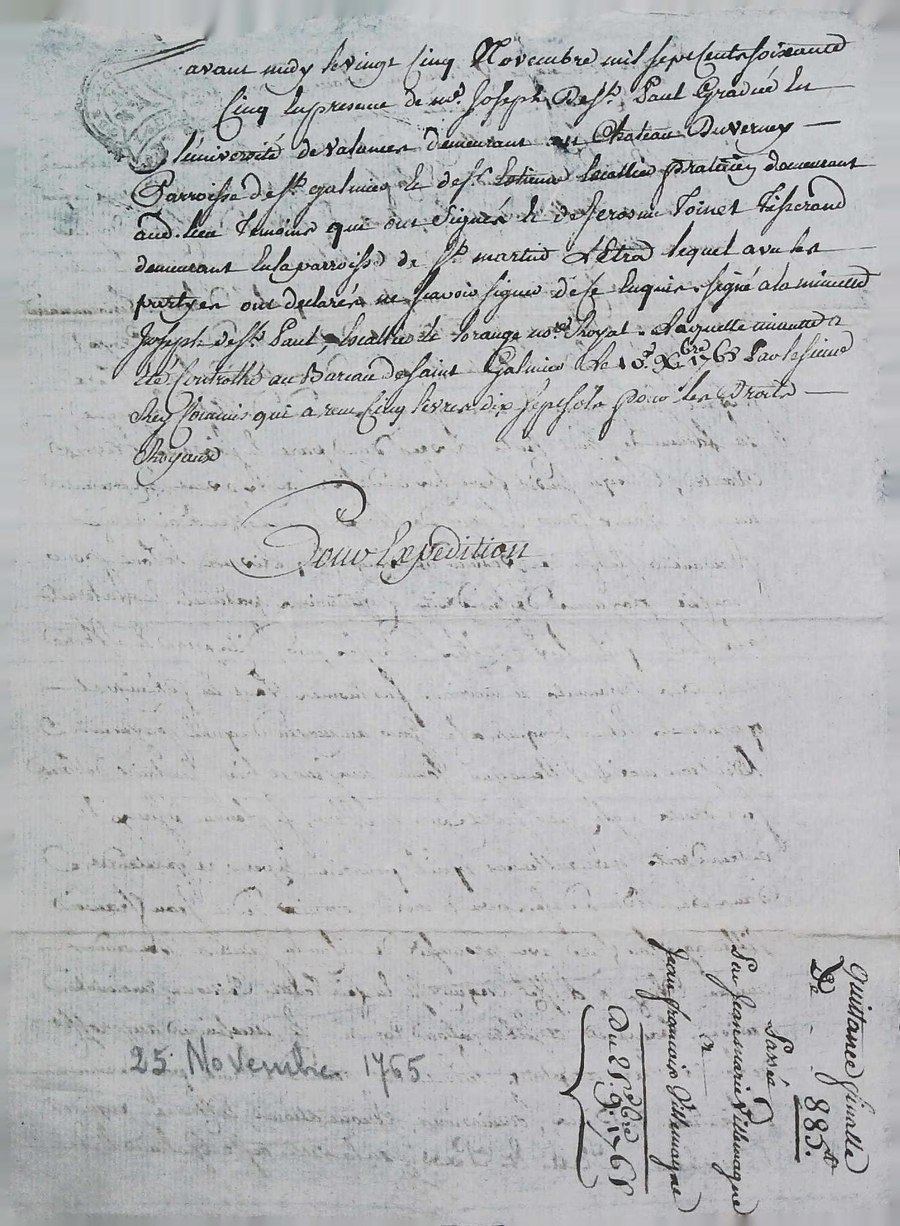 avant midy le vingt Cinq Novembre mil sept Cents soixante
Cinq En presence de me. Joseph De st. Paul Gradué En
L'université de valance demeurant au Chateau Duverney
Parroisse de st. galmier & de sr. Locattier praticien demeurant
aud. lieu Temoins qui ont Signés & de Toinet Tisserand
demeurant En la parroisse de st. martin Lestra lequel avec les
partyes ont declarés ne scavoir signer de ce Enquis signé a la minutte
Joseph de st. Paul, Locattier & notre. Royal. Laquelle minutte a
été Controllé au Bureau de saint Galmier le Xbre 1765 Par le sieur
qui a recu Cinq livres dix sept sols pour les Droits
Royaux
Pour Expedition
25 Novembre 1765
Quittance finalle
De - - 885.lt
Passé
Par Jean marie Villemagne
a
Jean françois Villemagne
Du 25. 9.bre 1765